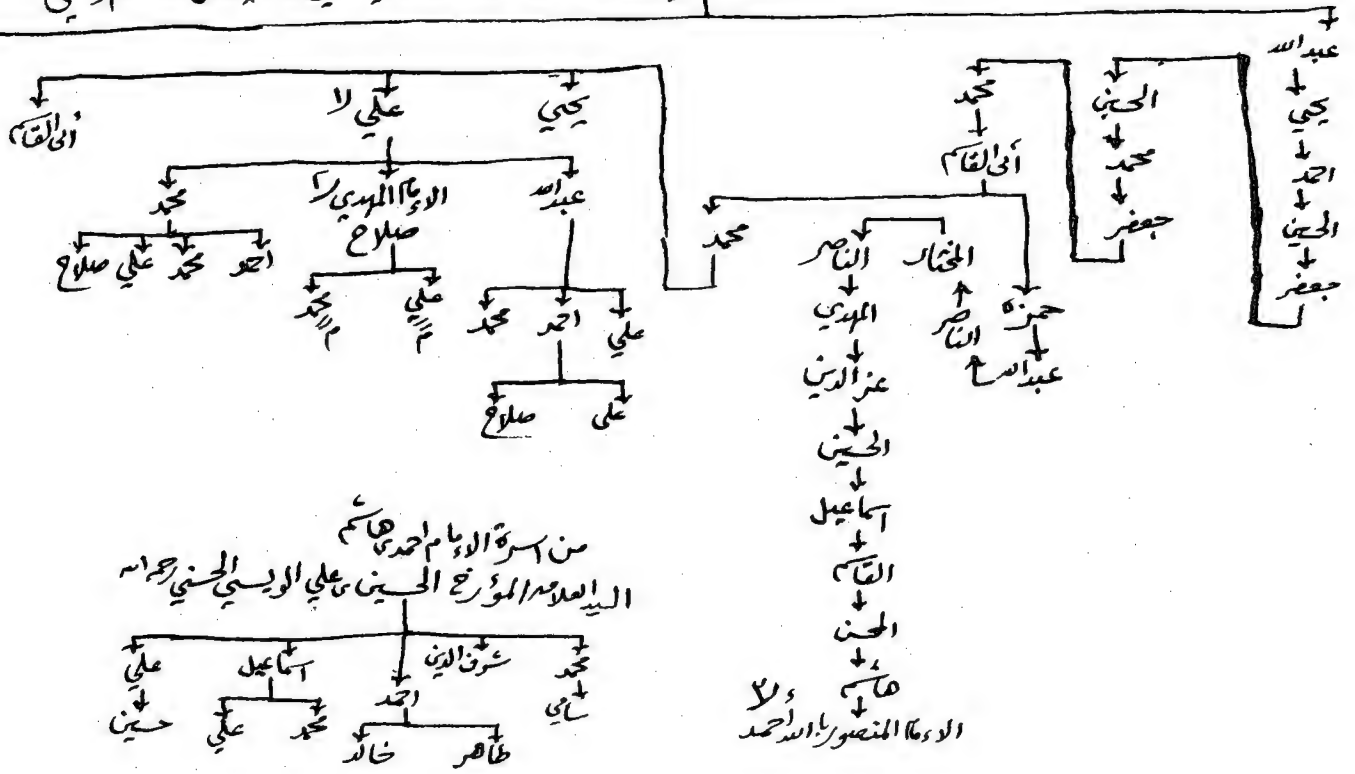 عبدالله
يحيي
احمد
الحسين
جعفر
الحسين
محمد
جعفر
محمد
أبى القاسم
حمزه
عبدالله
الناصر
المختار
الناصر
المهدي
عز الدين
الحسين
اسماعيل
القاسم
الحسن
هاشم
الامام المنصور بالله احمد
محمد
يحيي
علي لا
أبى القاسم
عبدالله
الامام المهدي
صلاح
محمد
علي
احمد
محمد
علي
صلاح
علي
محمد
احمد
محمد
علي
صلاح
من اسرة الامام احمد بن هاشم
السيد العلامه المؤرخ الحسين بن علي الويسي الحسني رحمه الله
محمد
سامي
شرف الدين
احمد
طاهر
خالد
اسماعيل
محمد
علي
علي
حسين